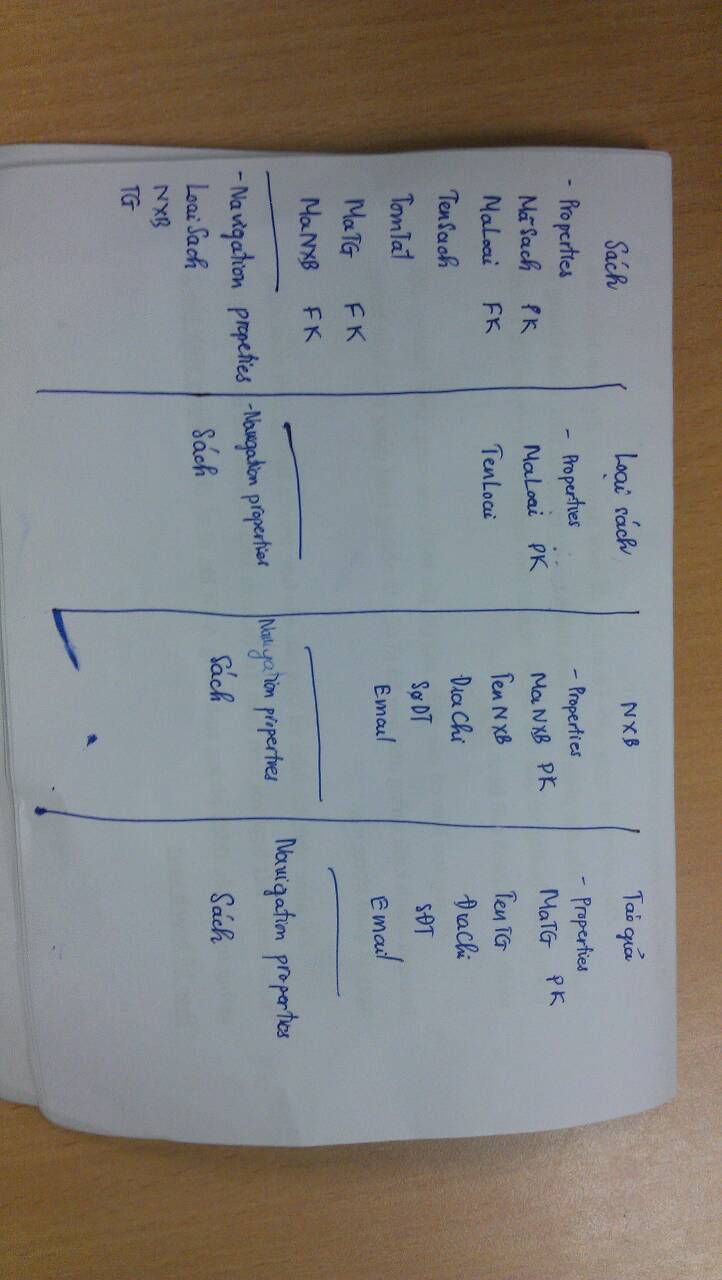 Sách
- Properties
MãSach PK
MaLoai FK
TenSach
TomTat
MaTG FK
MaNXB FK
- Navigation propeties
LoaiSach
NXB
TG
Loại sách
- Properties
MaLoai PK
TenLoai
- Navigation properties
Sách
NXB
- Properties
MaNXB PK
TenNXB
ĐiaChi
SoDT
Email
Navigation properties
Sách
Tác giả
- Properties
MaTG PK
TenTG
ĐiaChi
SĐT
Email
Navigation properties
Sách